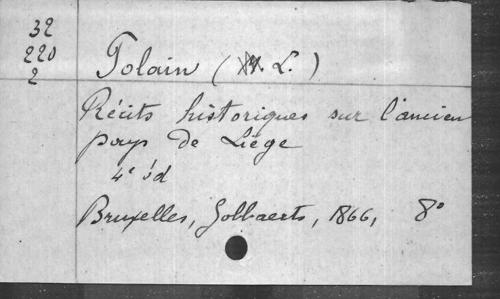 32
220
2
Polain ( L.)
Récits historiques sur l'ancien
pays de Liége
4e éd
Bruxelles, Gobbaerts, 1866, 8°